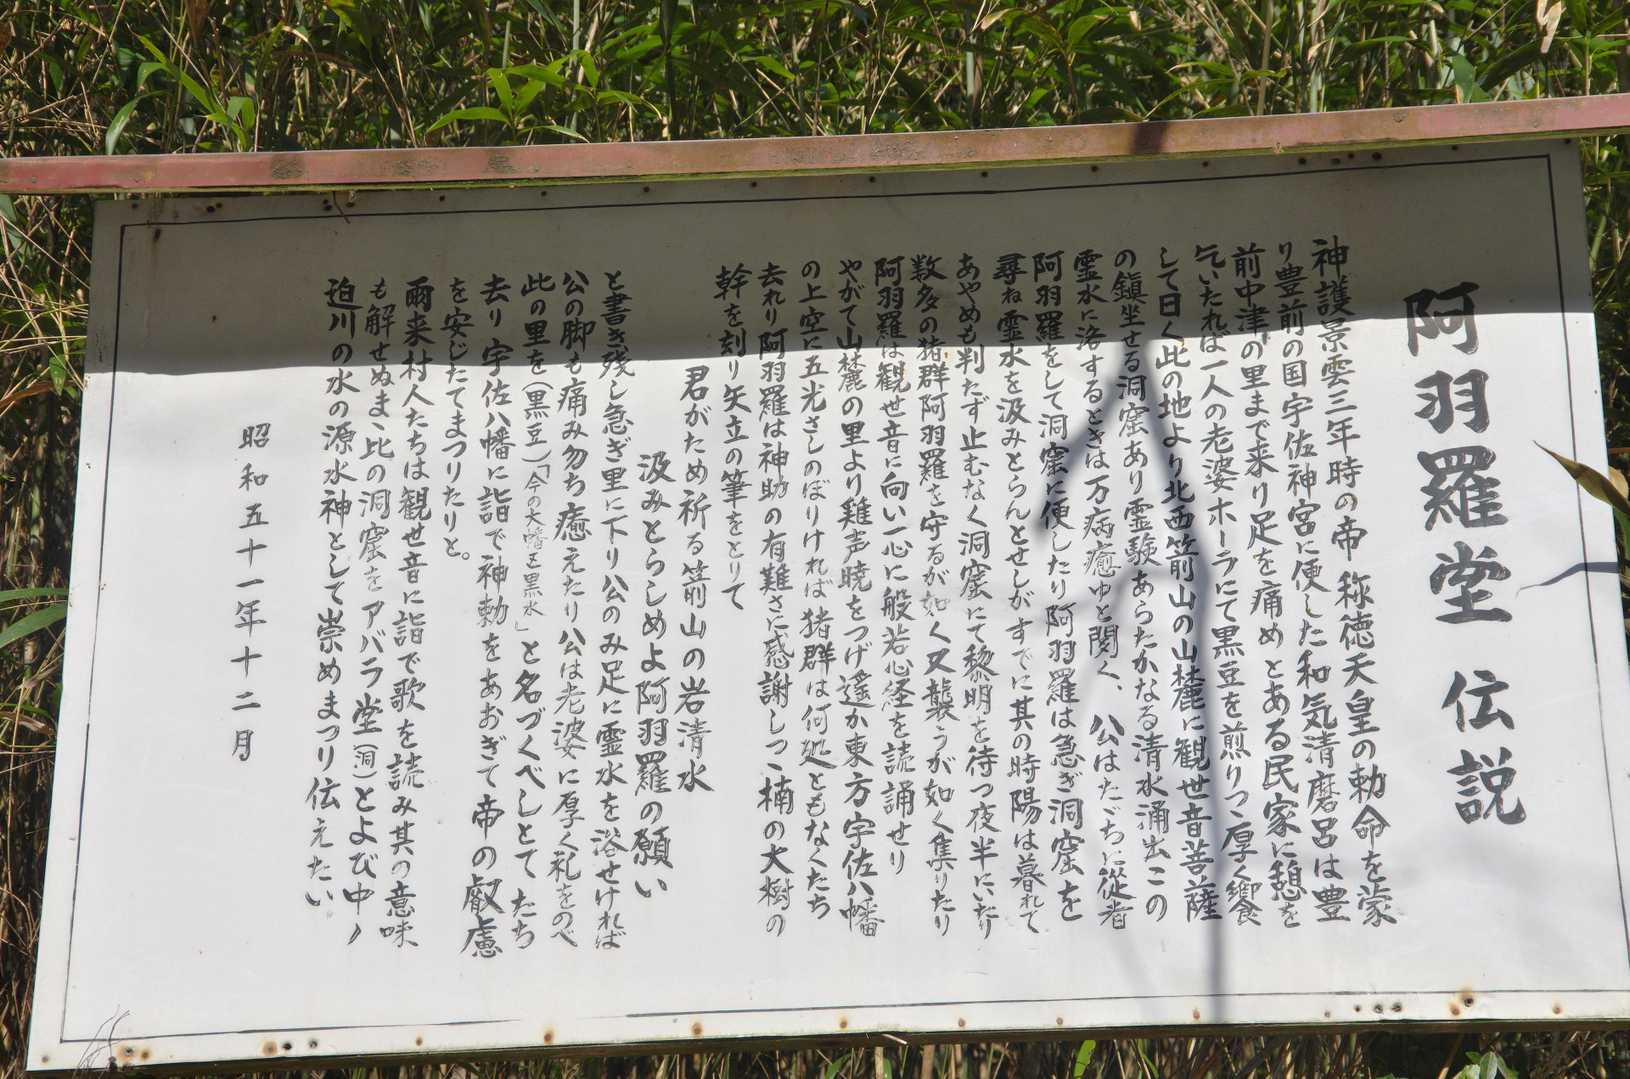 阿羽羅堂 伝説
神護景雲三年時の帝 称徳天皇の勅命を蒙
り豊前の国宇佐神宮に使した和気清磨呂は豊
前中津の里まで来り足を痛めとある民家に憩を
乞いたれば一人の老婆ホーラにて黒豆を煎りつゝ厚く饗食
して曰く此の地より北西箭山の山麓に観世音菩薩
の鎮坐せる洞窟あり霊験あらたかなる清水涌出この
霊水に洛するときは万病癒ゆと聞く、公はたゞちに従者
阿羽羅をして洞窟に使したり阿羽羅は急ぎ洞窟を
尋ね霊水を汲みとらんとせしがすでに其の時陽は暮れて
あやめも判たず止むなく洞窟にて黎明を待つ夜半にいたり
数多の猪群阿羽羅を守るが如く又襲うが如く集りたり
阿羽羅は観世音に向い一心に般若心経を読誦せり
やがて山麓の里より雞声暁をつげ遙か東方宇佐八幡
の上空に五光さしのぼりければ猪群は何処ともなくたち
去れり阿羽羅は神助の有難さに感謝しつゝ楠の大樹の
幹を刻り矢立の筆をとりて
君がため祈る箭山の岩清水
汲みとらしめよ阿羽羅の願い
と書き残し急ぎ里に下り公のみ足に霊水を浴せければ
公の脚も痛み勿ち癒えたり公は老婆に厚く礼をのべ
此の里を(黒豆)「今の大幡区黒水」と名づくべしとてたち
去り宇佐八幡に詣で神勅をあおぎて帝の叡慮
を安じたてまつりたりと。
爾来村人たちは観世音に詣で歌を読み其の意味
も解せぬまゝ比の洞窟をアバラ堂(洞)とよび中ノ
迫川の水の源水神として崇めまつり伝えたい
昭和五十一年十二月